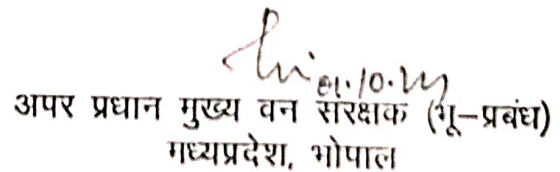 अपर प्रधान मुख्य वन संरक्षक (भू-प्रबंध)
मध्यप्रदेश, भोपाल